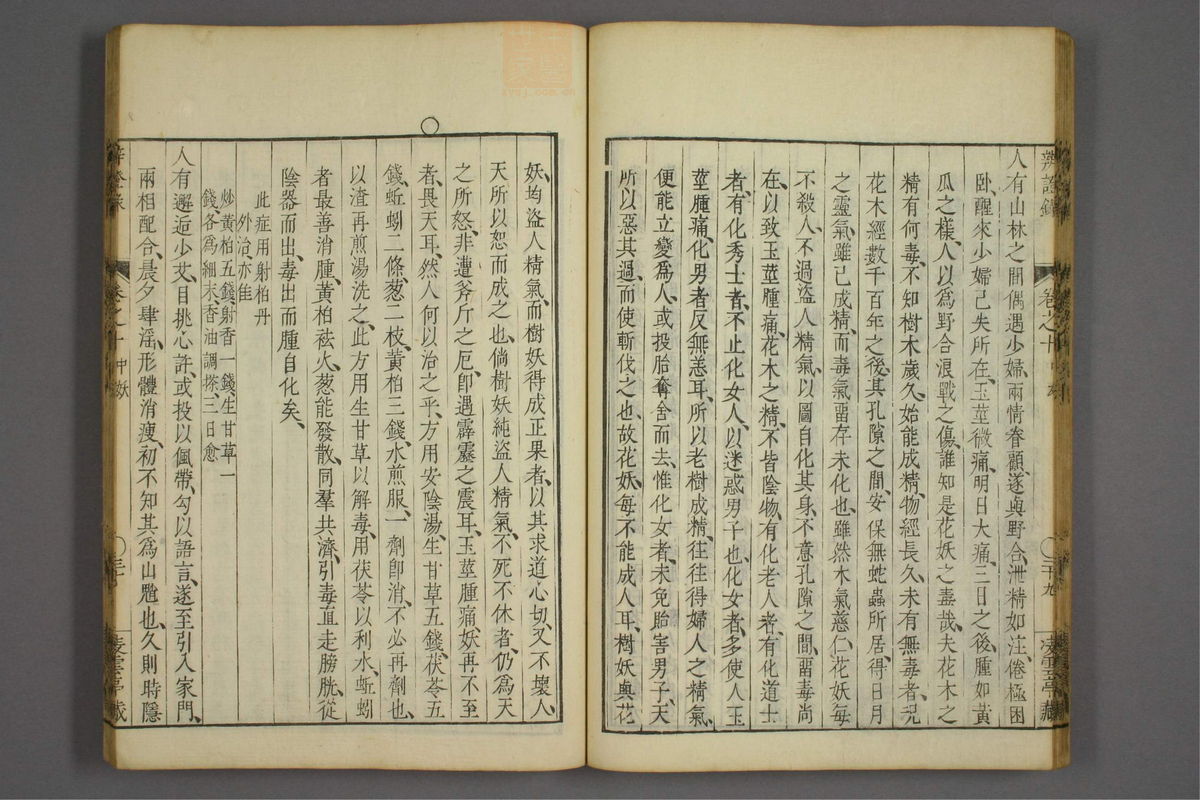 辨證錄 卷之十 中妖 二十九 凌雲亭藏
人有山林之間偶遇少婦、兩情眷顧、遂與野合、泄精如注、倦極困
臥、醒來少婦已失所在、玉莖微痛、明日大痛、三日之後、腫如黃
瓜之樣、人以爲野合浪戰之傷、誰知是花妖之毒哉、夫花木之
精有何毒、不知樹木歲久、始能成精、物經長久、未有無毒者、况
花木經數千百年之後、其孔隙之間、安保無蛇蟲所居、得日月
之靈氣、雖已成精、而毒氣畱存未化也、雖然木氣慈仁、花妖每
不殺人、不過盜人精氣、以圖自化其身、不意孔隙之間、畱毒尚
在、以致玉莖腫痛、花木之精、不皆陰物、有化老人者、有化道士
者、有化秀士者、不止化女人、以迷惑男子也、化女者、多使人玉
莖腫痛、化男者反無恙耳、所以老樹成精、往往得婦人之精氣、
便能立變爲人、或投胎奪舍而去、惟化女者、未免貽害男子、天
所以惡其過、而使斬伐之也、故花妖每不能成人耳、樹妖與花
妖、均盜人精氣、而樹妖得成正果者、以其求道心切、又不壞人、
天所以恕而成之也、倘樹妖純盜人精氣、不死不休者、仍爲天
之所怒、非遭斧斤之厄、卽遇霹靂之震耳、玉莖腫痛、妖再不至
者、畏天耳、然人何以治之乎、方用安陰湯、生甘草五錢、茯苓五
錢、蚯蚓二條、葱二枝、黃栢三錢、水煎服、一劑卽消、不必再劑也、
以渣再煎湯洗之、此方用生甘草以解毒、用茯苓以利水、蚯蚓
者最善消腫、黃栢祛火、葱能發散、同羣共濟、引毒直走膀胱、從
陰器而出、毒出而腫自化矣、
此症用射柏丹
外治、亦佳
炒黃栢五錢、射香一錢、生甘草一
錢、各爲細末、香油調搽、三日愈
人有邂逅少艾、目挑心許、或投以佩帶、勾以語言、遂至引入家門、
兩相配合、晨夕肆淫、形體消瘦、初不知其爲山魈也、久則時隱
辨證錄 卷之十 中妖 三十 凌雲亭藏